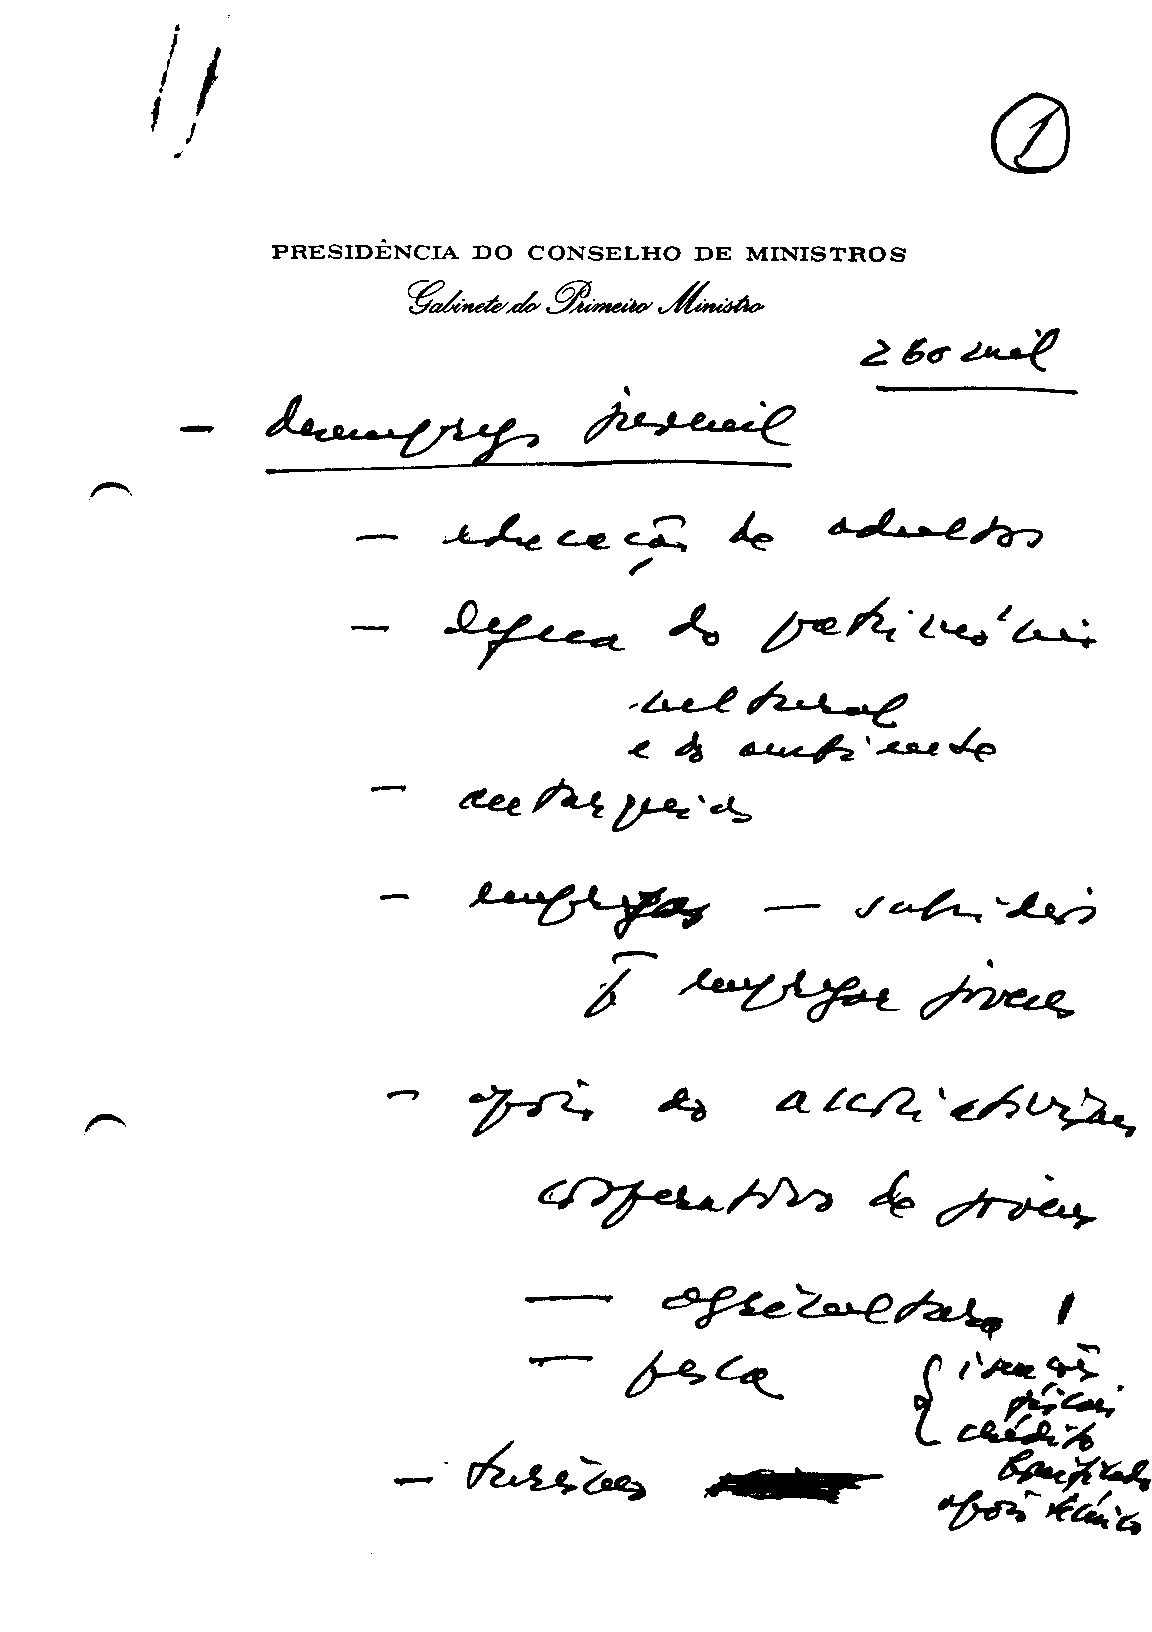 1
PRESIDÊNCIA DO CONSELHO DE MINISTROS
Gabinete do Primeiro Ministro
260 mil
- desemprego juvenil
- educação de adultos
- defesa do património
cultural
e do ambiente
- autarquias
- empregos - subsídios
p̄ empregar jovens
- apoio do associativismo
cooperativo de jovens
- agricultura
- pesca
{ isenções
fiscais
crédito
bonificado
apoio técnico
- turismo